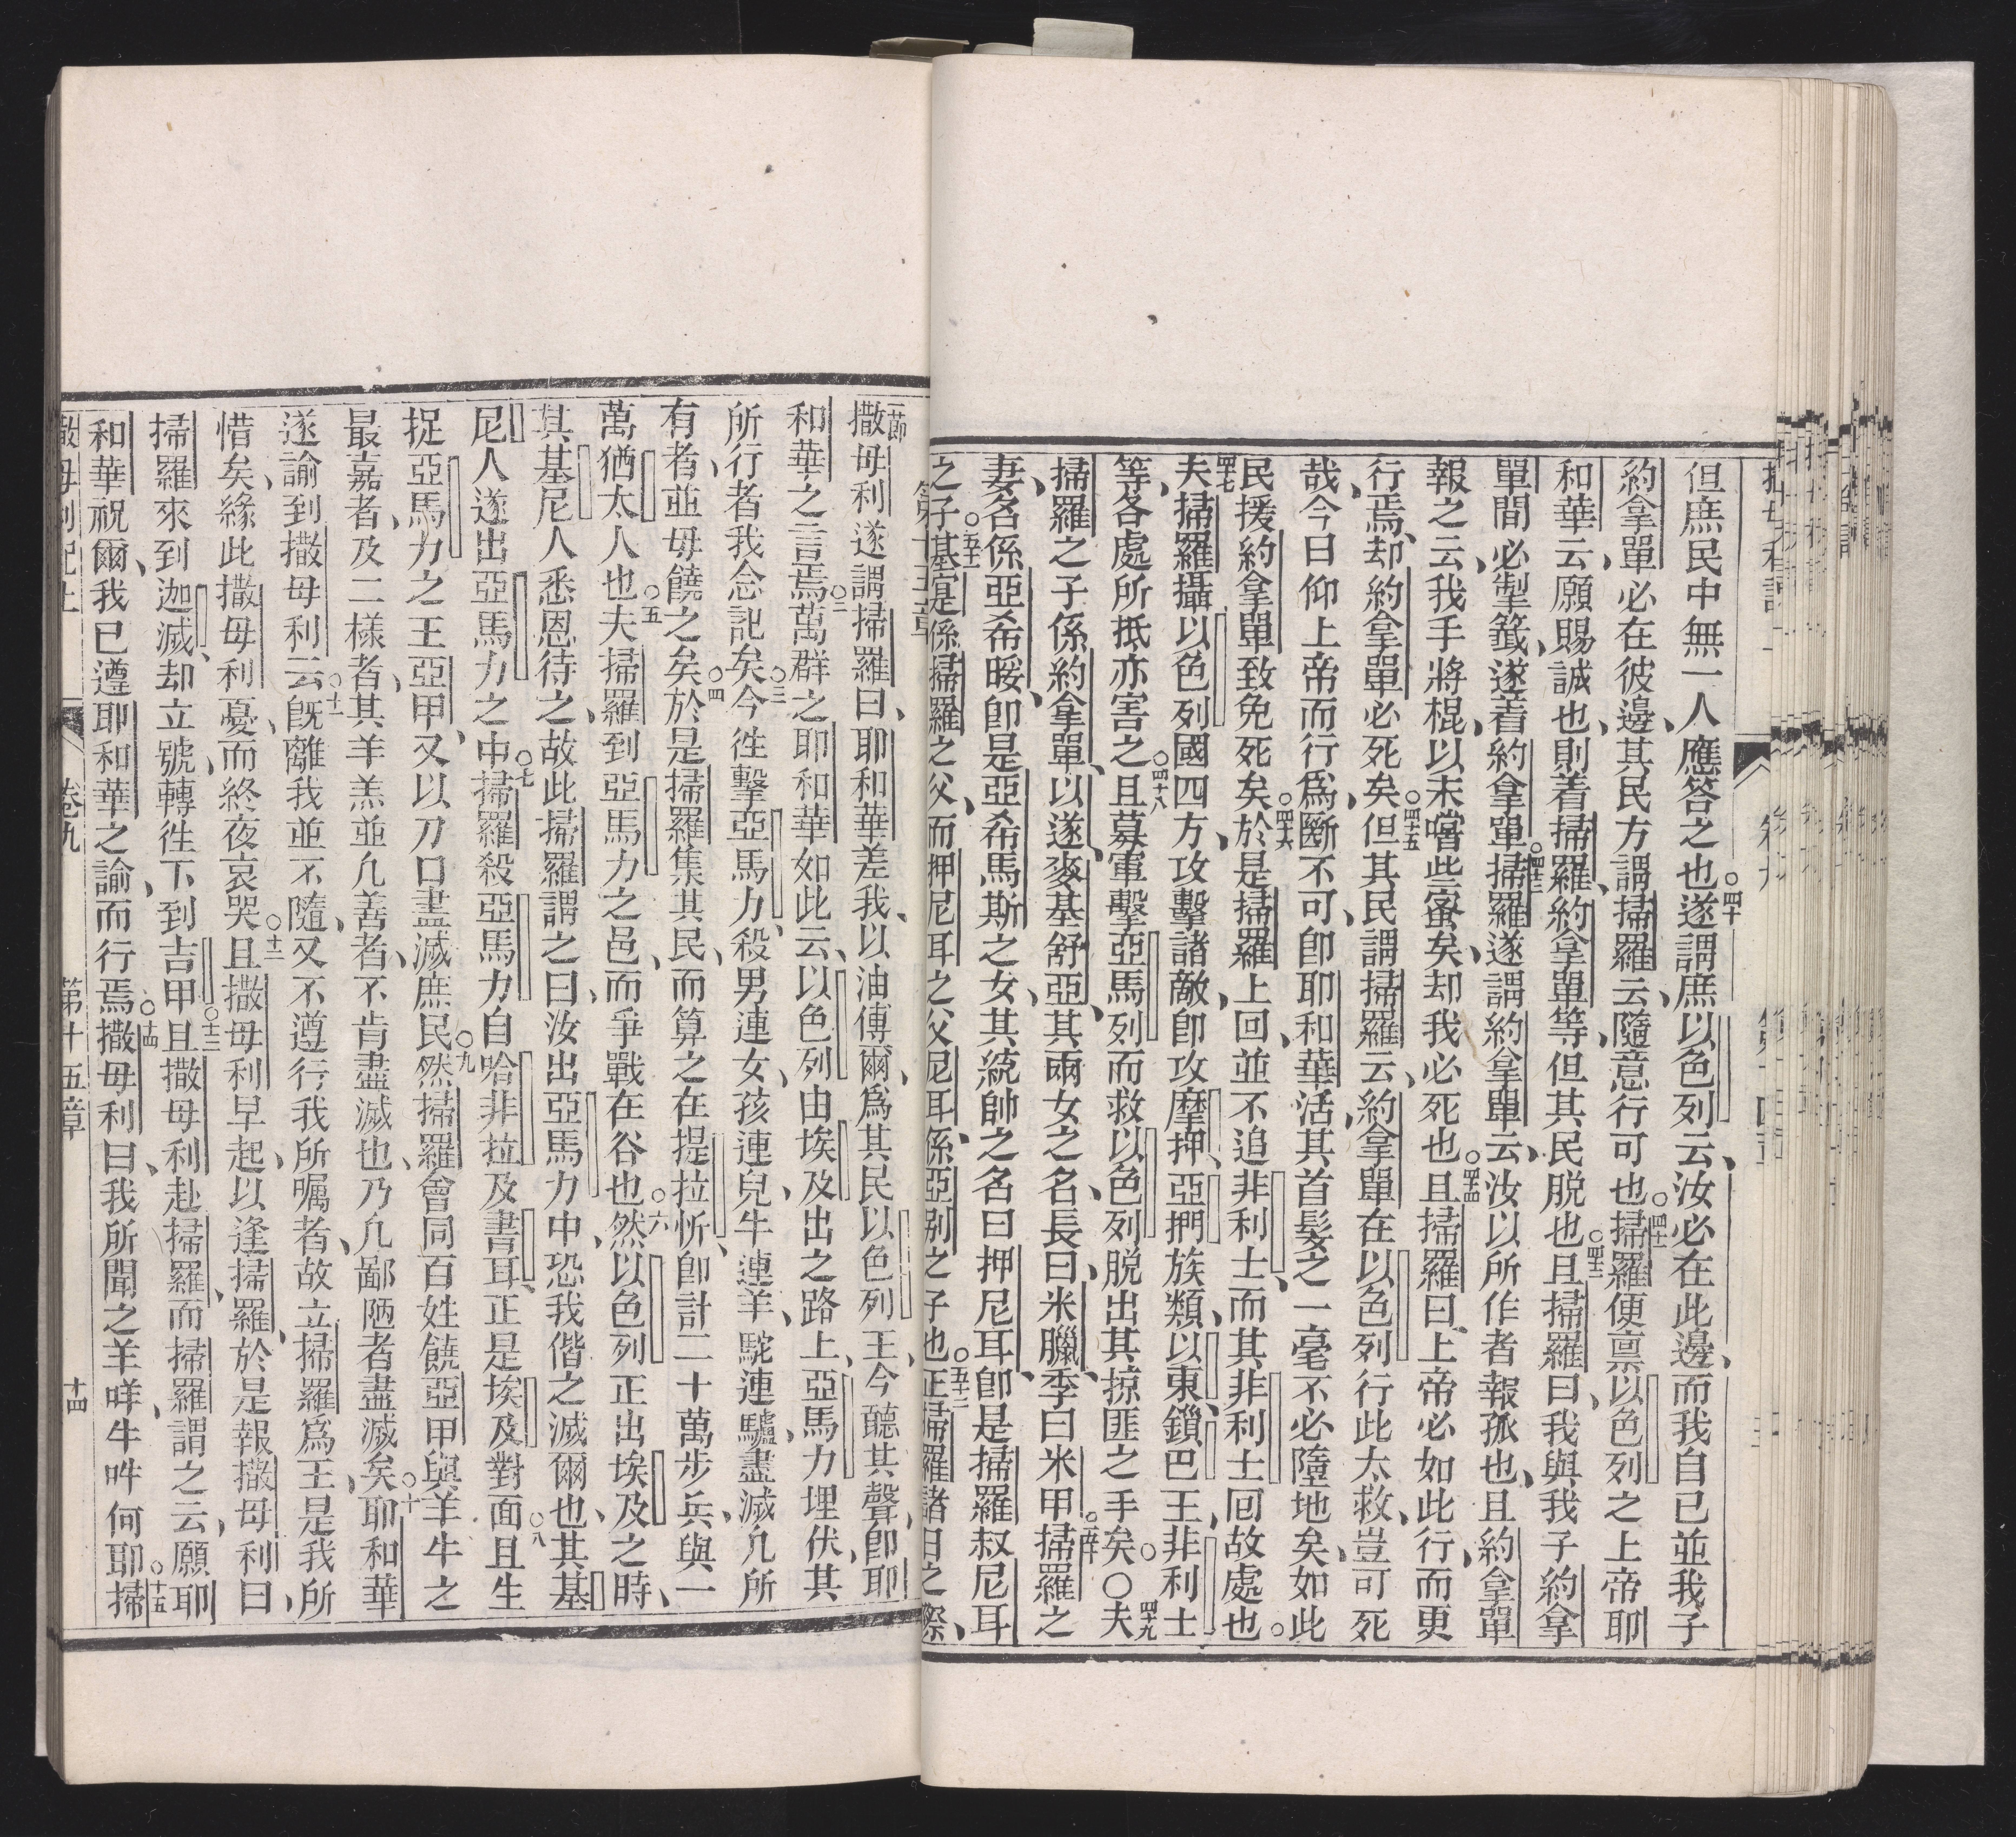 但庶民中無一人應答之也○四十遂謂庶以色列云、汝必在此邊、而我自己並我子
約拿單、必在彼邊、其民方謂掃羅云、隨意行可也○四十一掃羅便禀以色列之上帝耶
和華云、願賜誠也、則着掃羅、約拿單等、但其民脱也○四十二且掃羅曰、我與我子約拿
單間必掣籤、遂着約拿單○四十三掃羅遂謂約拿單云、汝以所作者報孤也、且約拿單
報之云、我手將棍、以末嚐些蜜矣、却我必死也○四十四且掃羅曰、上帝必如此行、而更
行焉、却約拿單必死矣○四十五但其民謂掃羅云、約拿單在以色列行此太救、豈可死
哉、今日仰上帝而行、爲斷不可、即耶和華活、其首髮之一毫不必墮地矣、如此
民援約拿單致免死矣○四十六於是掃羅上回、並不追非利士、而其非利士回故處也○
四十七夫掃羅攝以色列國四方、攻擊諸敵、即攻摩押、亞捫族類、以東、鎖巴王、非利士
等、各處所抵亦害之○四十八且募軍擊亞馬列而救以色列脱出其掠匪之手矣○○四十九夫
掃羅之子係約拿單、以遂、麥基舒亞、其兩女之名、長曰、米臘、季曰米甲○五十掃羅之
妻、名係亞希暖、即是亞希馬斯之女、其統帥之名曰押尼耳、即是掃羅叔尼耳
之子○五十一基寔係掃羅之父、而押尼耳之父尼耳、係亞别之子也○五十二正掃羅諸日之際、
第十五章
一節撒母利遂謂掃羅曰、耶和華差我、以油傅爾、爲其民以色列王、今聽其聲、即耶
和華之言焉○二萬群之耶和華如此云、以色列由埃及出之路上、亞馬力埋伏、其
所行者我念記矣○三今徃擊亞馬力、殺男連女、孩連兒、牛連羊、駝連驢、盡滅凡所
有者、並毋饒之矣○四於是掃羅集其民、而算之在提拉忻、即計二十萬步兵、與一
萬猶太人也○五夫掃羅到亞馬力之邑、而爭戰在谷也○六然以色列正出埃及之時、
其基尼人悉恩待之、故此掃羅謂之曰、汝出亞馬力中、恐我偕之滅爾也、其基
尼人遂出亞馬力之中○七掃羅殺亞馬力自哈非拉及書耳、正是埃及對面○八且生
捉亞馬力之王亞甲、又以刀口盡滅庶民○九然掃羅會同百姓饒亞甲與羊牛之
最嘉者、及二様者、其羊羔並凡善者、不肯盡滅也、乃凡鄙陋者盡滅矣○十耶和華
遂諭到撒母利云○十一既離我並不隨、又不遵行我所囑者、故立掃羅爲王、是我所
惜矣、緣此撒母利憂、而終夜哀哭○十二且撒母利早起、以逢掃羅、於是報撒母利曰、
掃羅來到迦滅、却立號、轉徃下到吉甲○十三且撒母利赴掃羅、而掃羅謂之云、願耶
和華祝爾、我已遵耶和華之諭而行焉○十四撒母利曰、我所聞之羊咩、牛吽何耶○十五掃
撒母利記上 卷九 第十五章 十四